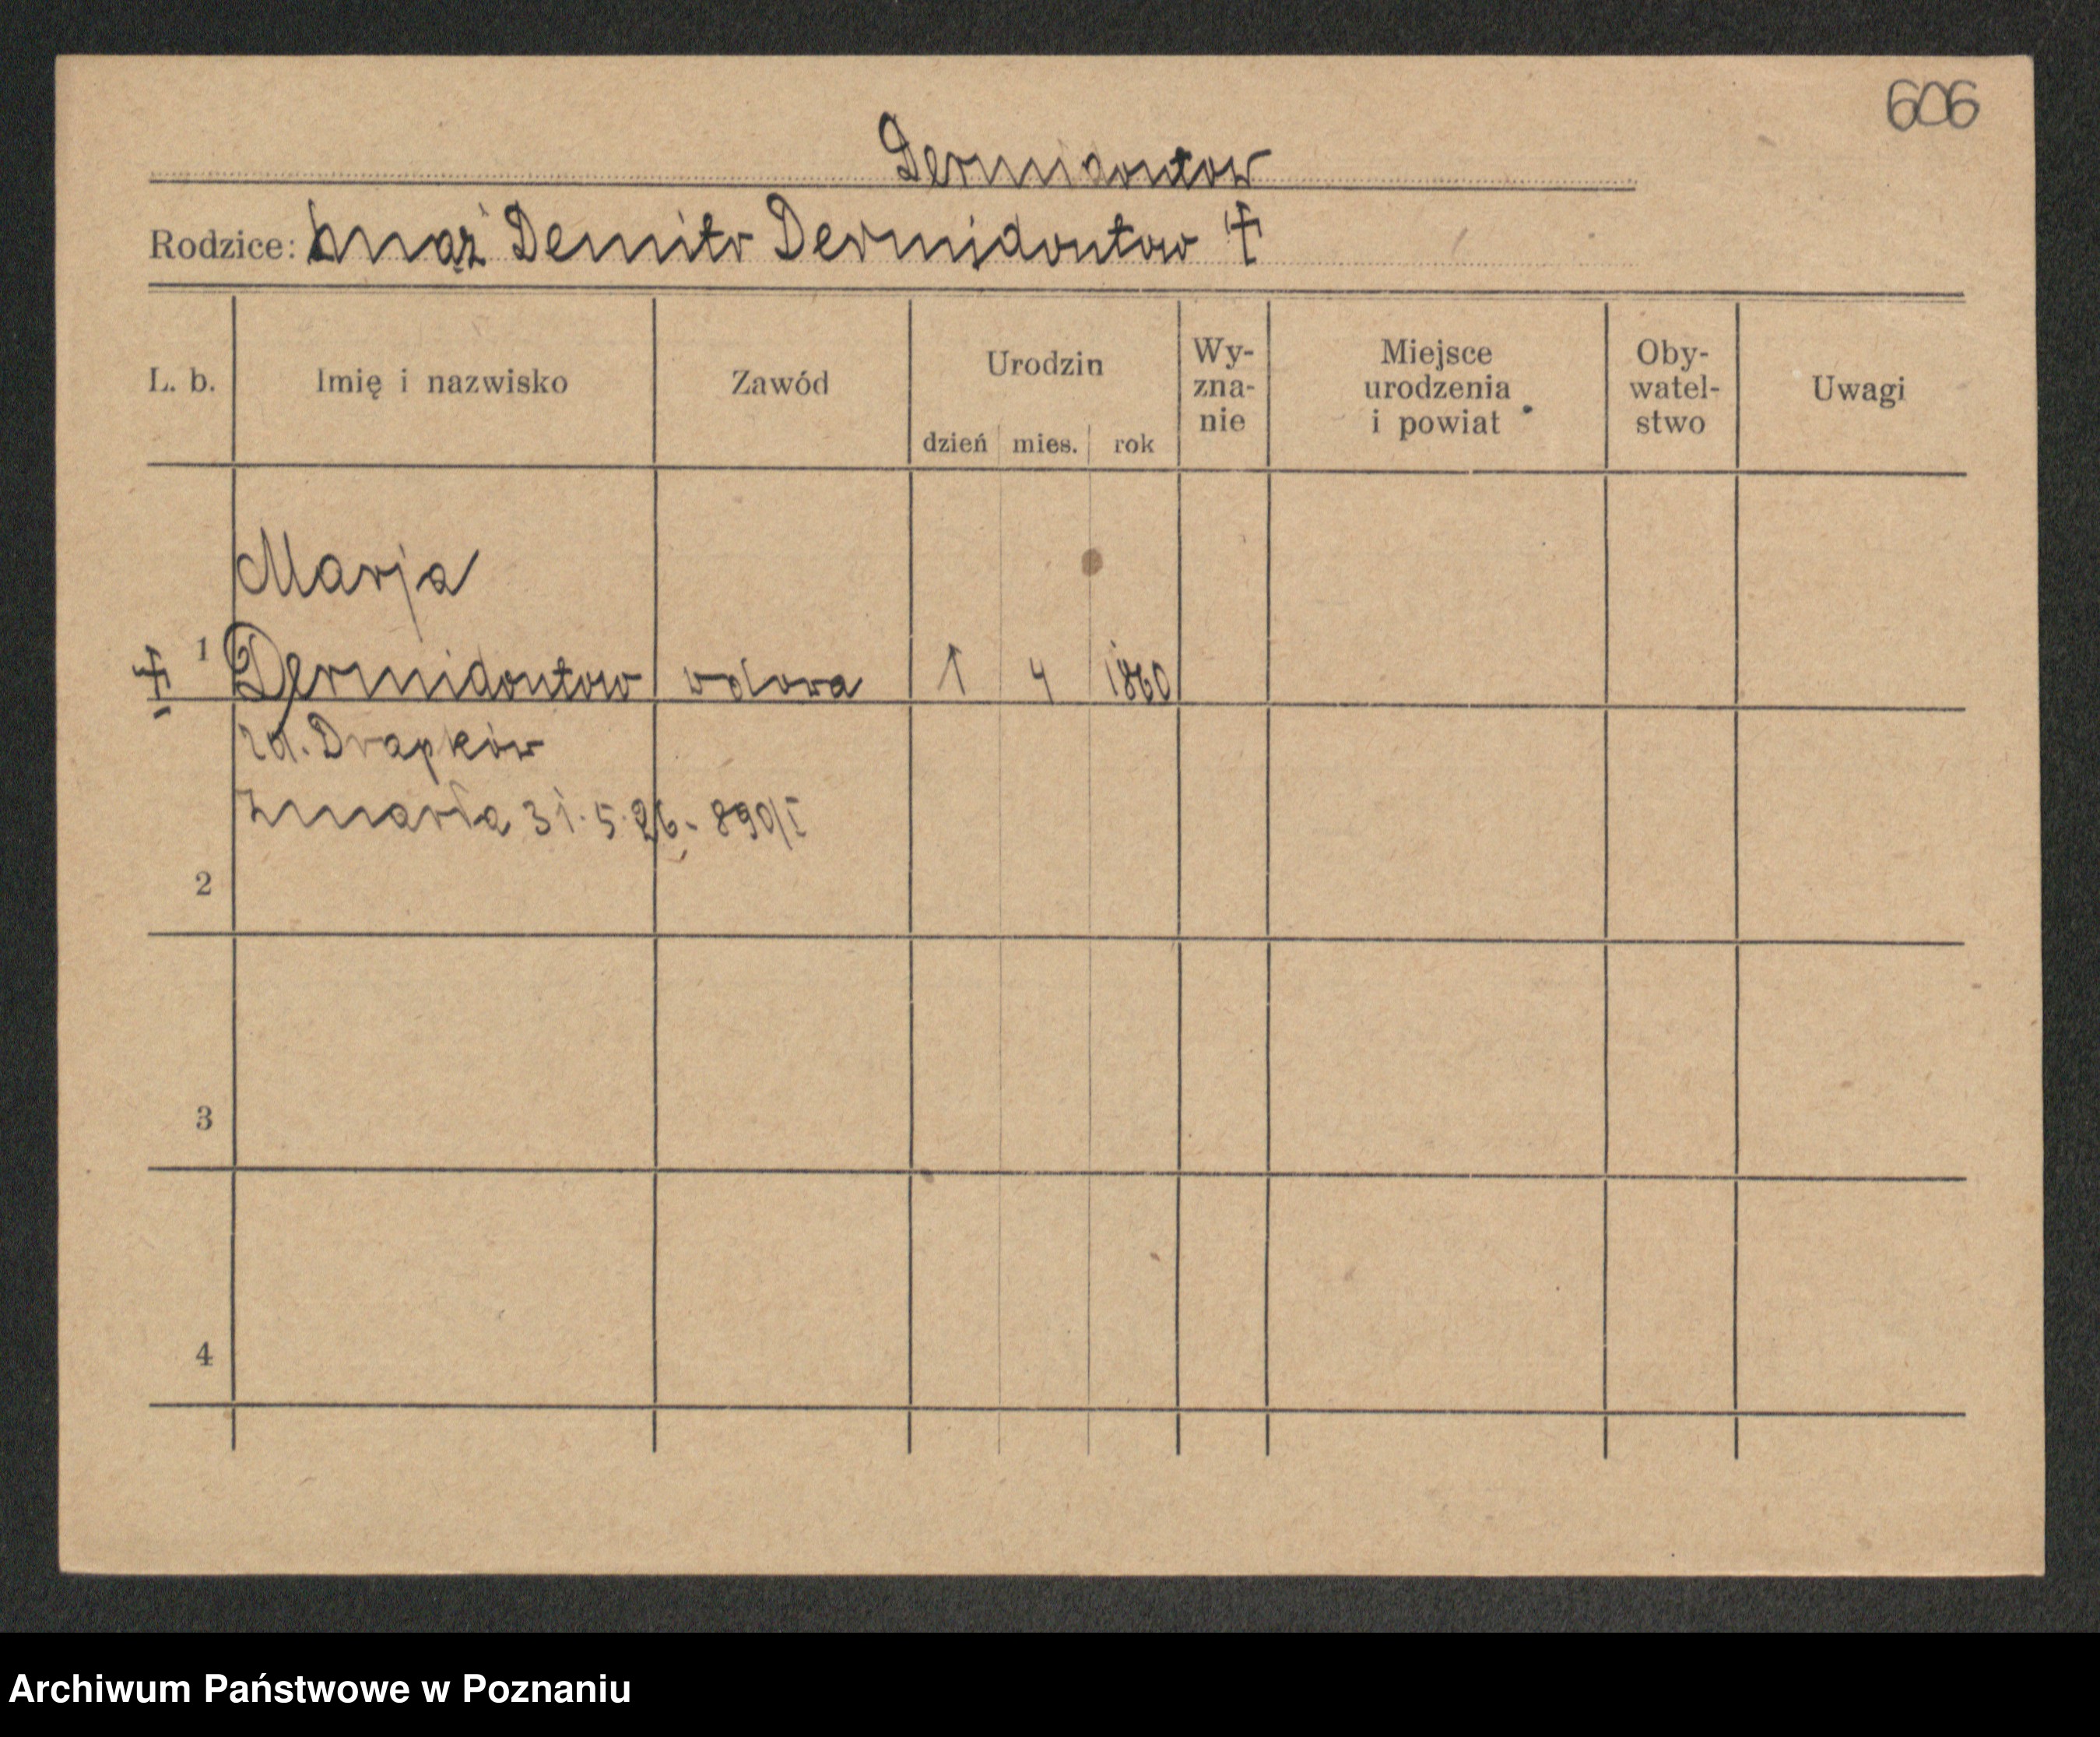 606
Dermidontow
Rodzice: mąż Demitr Dermidontow ‡
L. b. Imię i nazwisko Zawód Urodzin dzień mies. rok Wy-zna-nie Miejsce urodzenia i powiat Oby-watel-stwo Uwagi
Marja
‡ 1 Dermidontow wdowa 1 4 1860
zd. Drapków
zmarła 31.5.26. 890/I
2
3
4
Archiwum Państwowe w Poznaniu